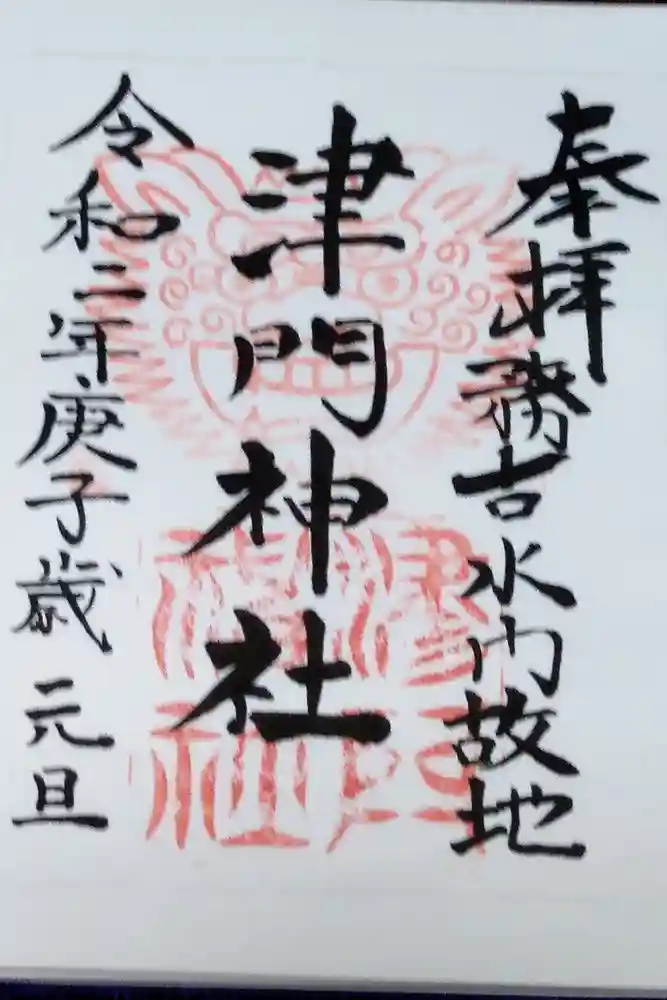 奉拝 務古水門故地
津門神社
令和二年庚子歳 元旦